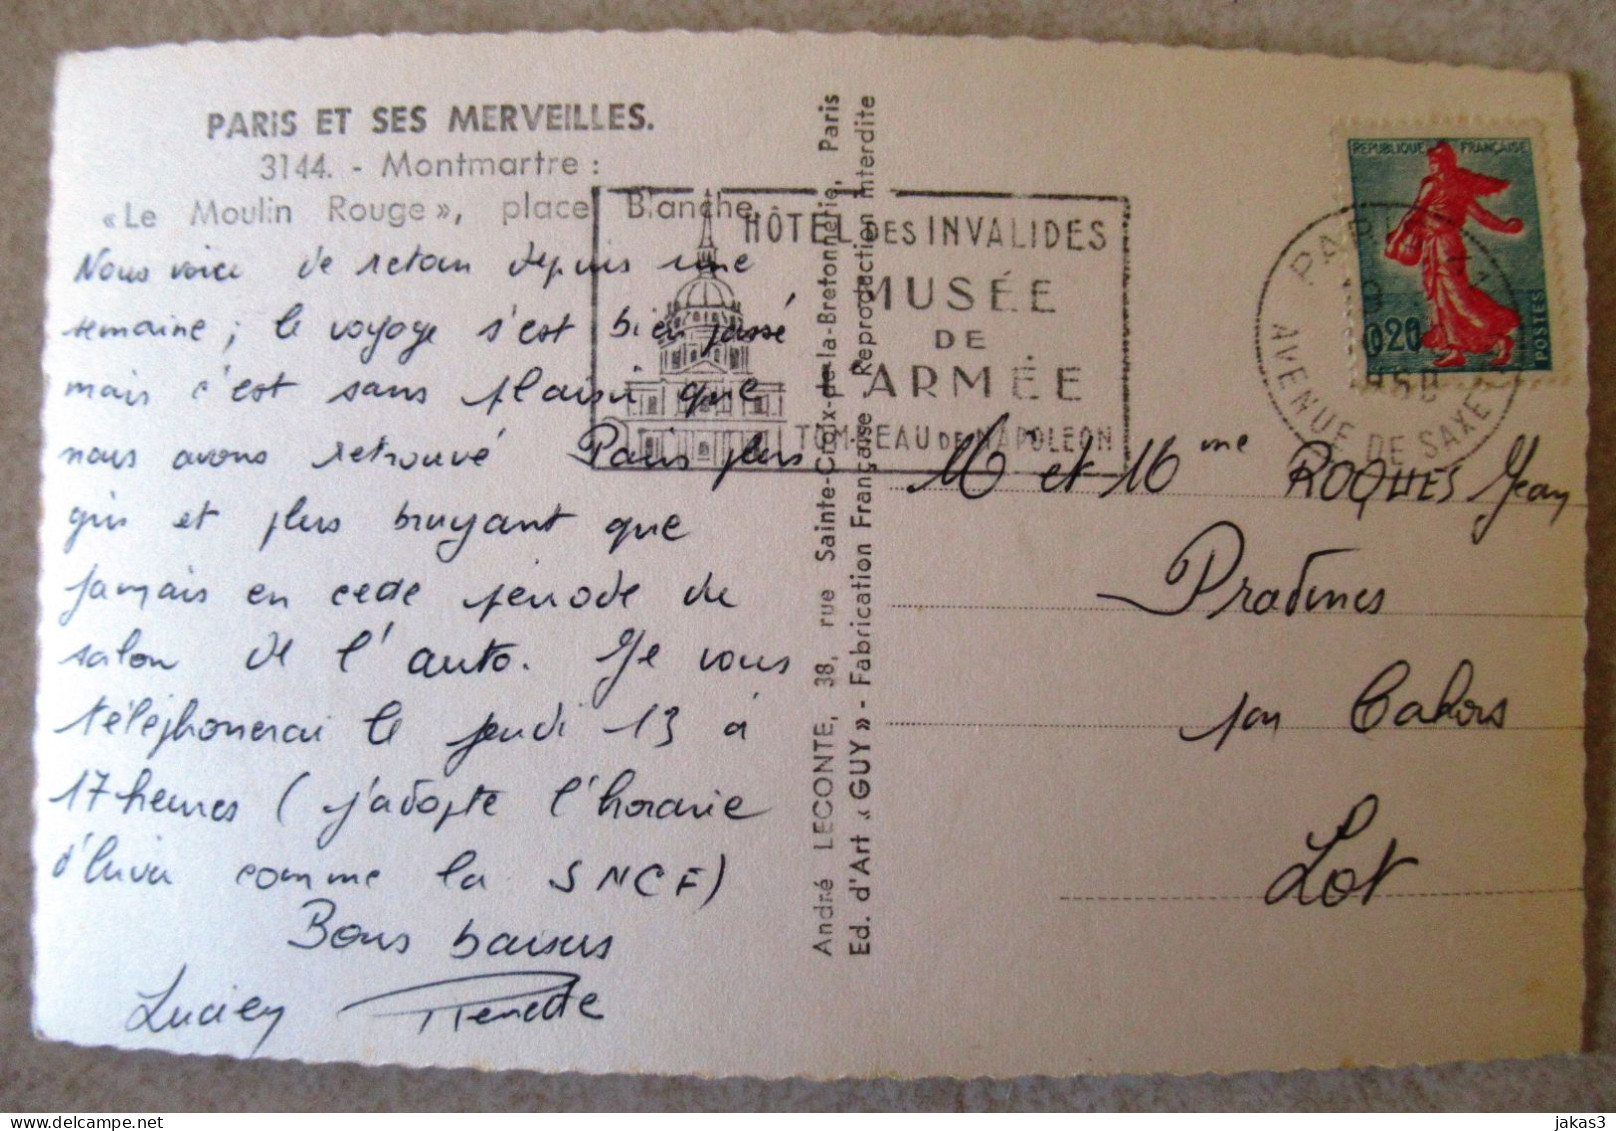 PARIS ET SES MERVEILLES.
3144. - Montmartre :
«Le Moulin Rouge», place Blanche.
Nous voici de retour depuis une
semaine ; le voyage s'est bien passé
mais c'est sans plaisir que
nous avons retrouvé Paris plus
gris et plus bruyant que
jamais en cette période du
salon de l'auto. Je vous
téléphonerai le jeudi 13 à
17 heures ( j'adopte l'horaire
d'hiver comme la SNCF)
Bons baisers
Lucien Pierrette
André LECONTE, 38, rue Sainte-Croix-de-la-Bretonnerie, Paris
Ed. d'Art «GUY» - Fabrication Française - Reproduction Interdite
HÔTEL DES INVALIDES
MUSÉE
DE
L'ARMÉE
TOMBEAU DE NAPOLEON
REPUBLIQUE FRANÇAISE
0,20
POSTES
PARIS
AVENUE DE SAXE
M et Mme ROQUES Jean
Pradines
par Cahors
Lot
jakas3